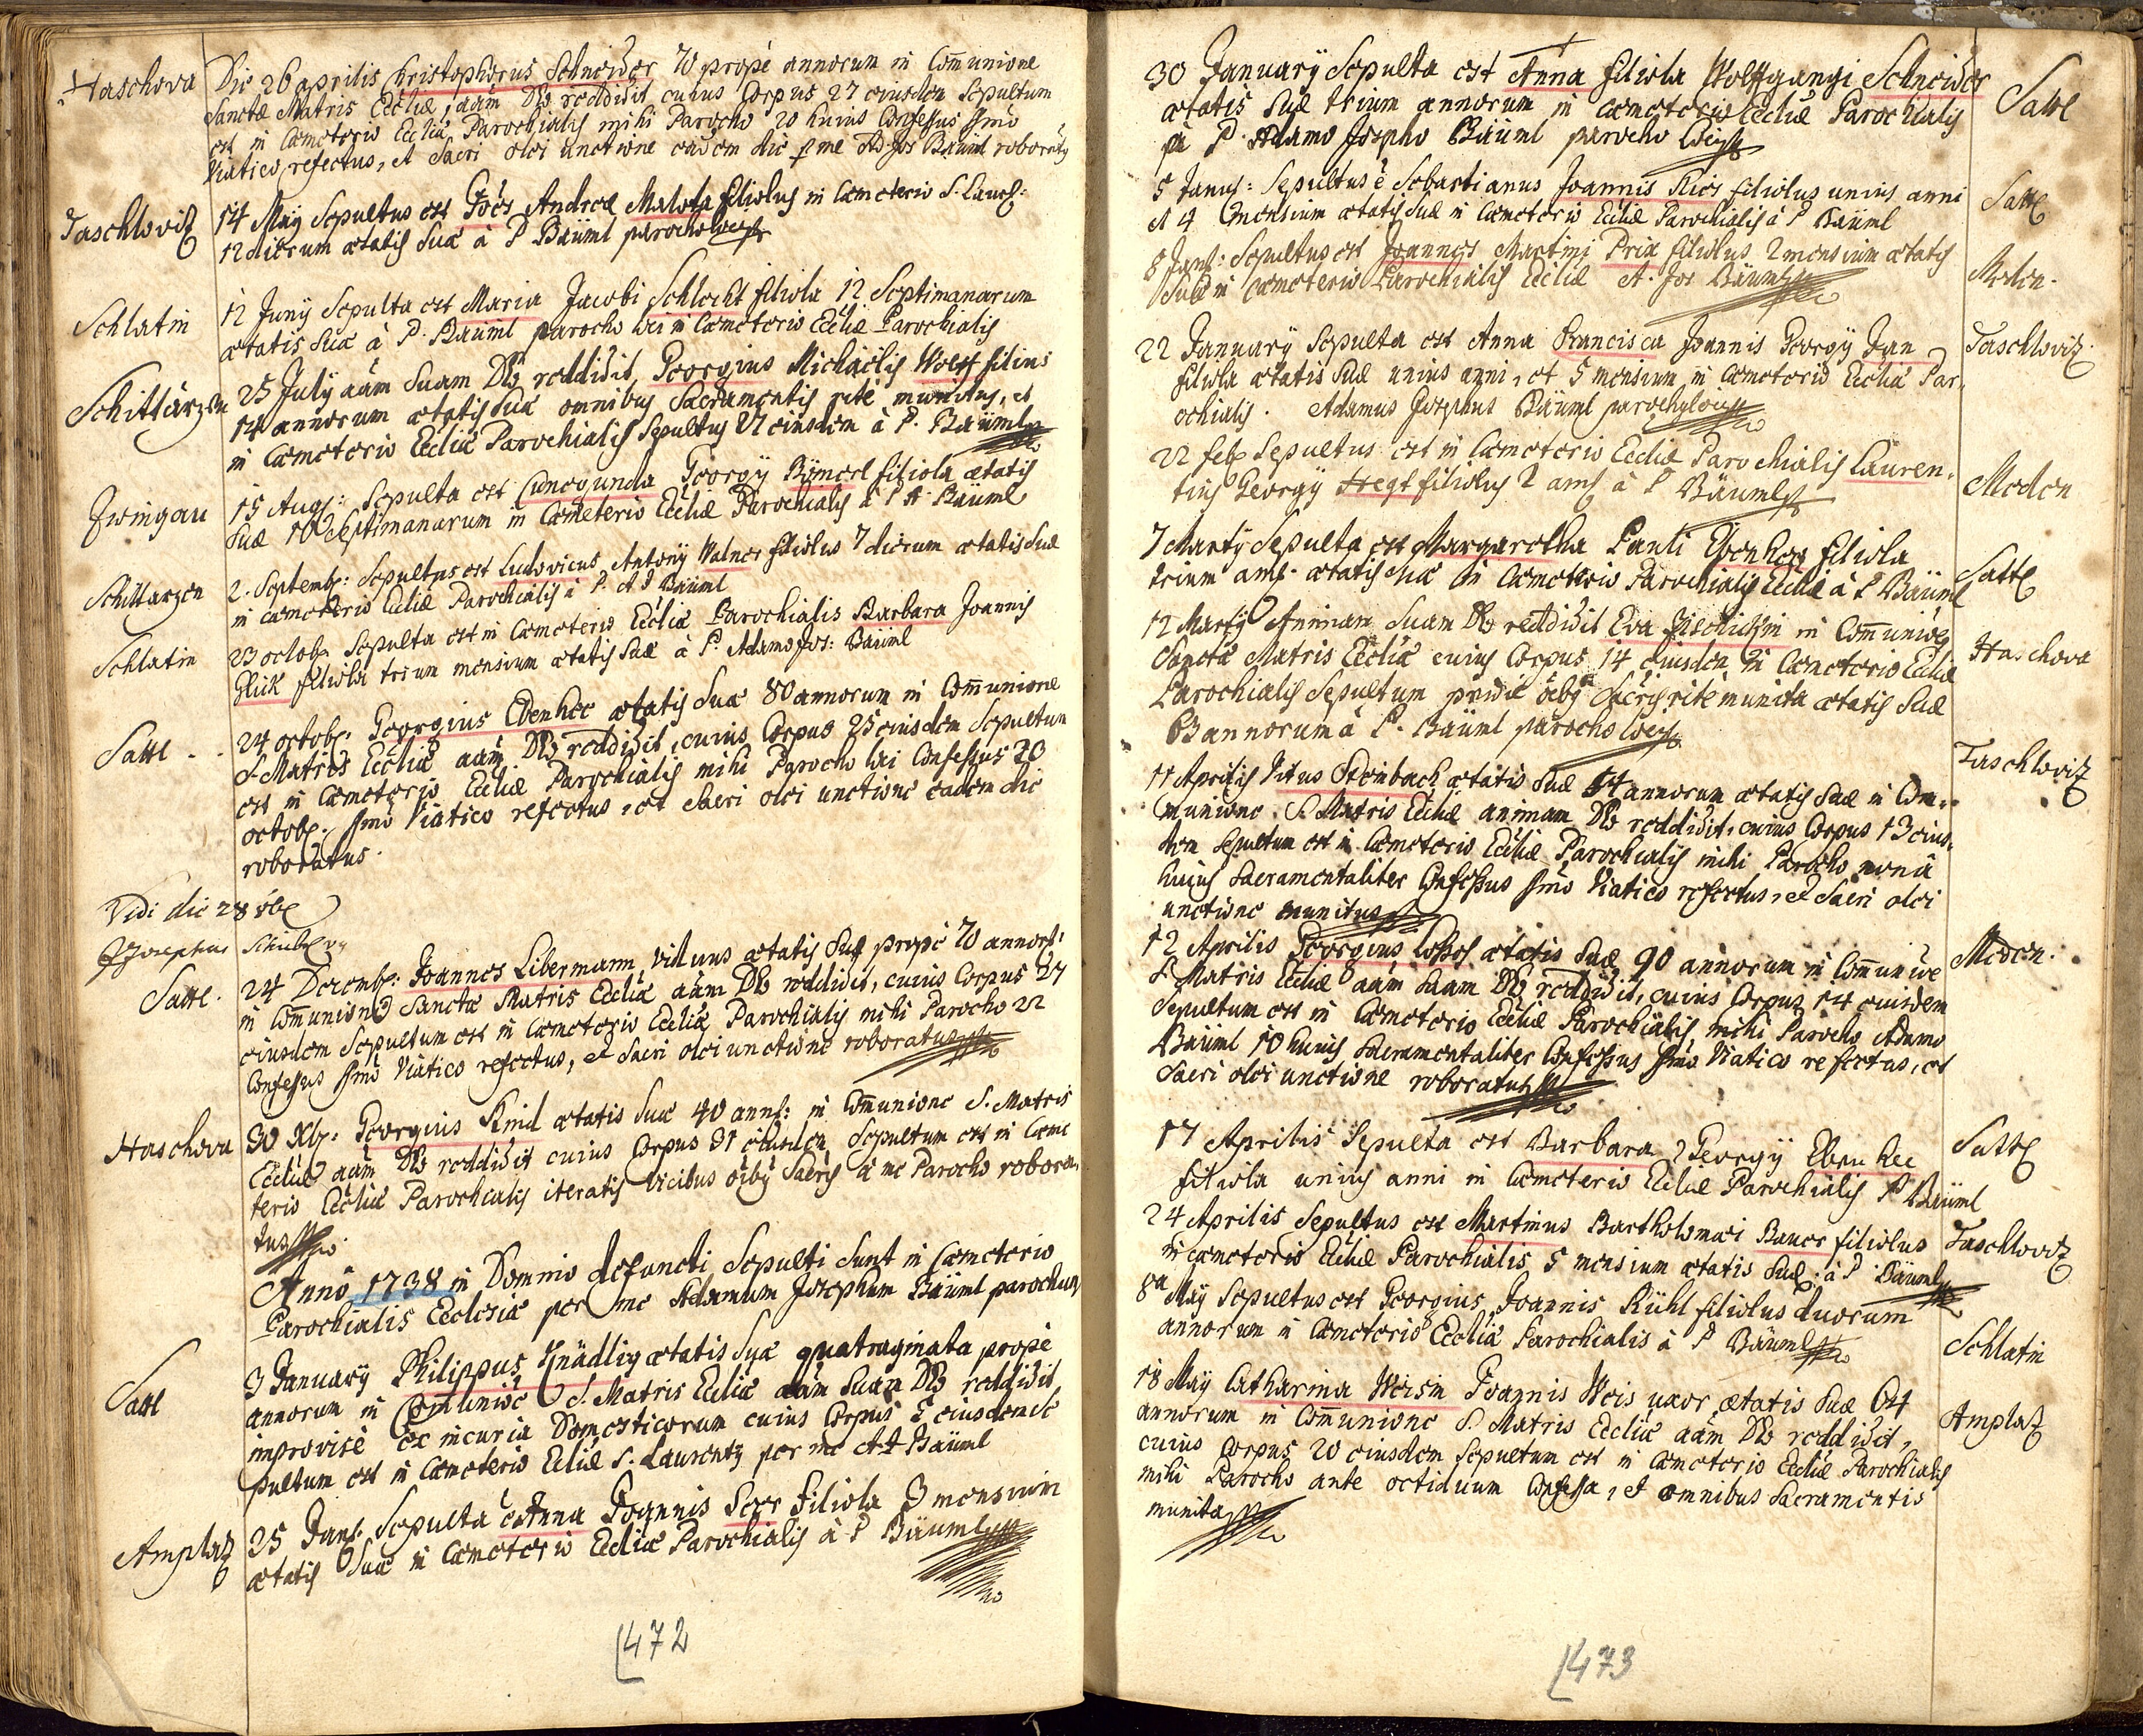 Haschova
Die 26 aprilis Christophorus Schneider 70 propè annorum in Com̄unione
Sanctæ Matris Eccliæ, aām Dō reddidit cuius Corpus 27 eiusdem Sepultum
est in Cæmeterio Eccliæ Parochialis mihi Parocho 20 huius Confessus ssmo
Viatico refectus, et Sacri olei unctione eadem die per me Ad Jos Bäuml roboratus
Taschlovitz
14 Maÿ Sepultus est Joēs Andreæ Malota filiolus in Cæmeterio S. Laur:
12 dierum ætatis suæ à P Bäuml parocho loci
Schlatin
12 Junÿ Sepulta est Maria Jacobi Schlecht filiola 12 Septimanarum
ætatis suæ à P. Bäuml parocho loci in Cæmeterio Eccliæ Parochialis
Schittarzen
25 Julÿ aām suam Dō reddidit Georgius Michaelis Wolff filius
14 annorum ætatis suæ omnibus Sacramentis ritè munitus, et
in Cæmeterio Eccliæ Parochialis Sepultus 27 eiusdem à P. Bäuml
Zwingau
15 Aug: Sepulta est Cunegunda Georgÿ Bÿmerl filiola ætatis
suæ 10 Septimanarum in Cæmeterio Eccliæ Parochialis à P A Bäuml
Schittarzen
2. Septemb: Sepultus est Ludovicus Antonÿ Walner filiolus 7 dierum ætatis suæ
in cæmeterio Eccliæ Parochialis à P. A J Bäuml
Schlatin
23 octob: Sepulta est in Cæmeterio Eccliæ Parochialis Barbara Joannis
Glück filiola trium mensium ætatis suæ à P. Adamo Jos: Bäuml
Satte - .
24 octob: Georgius Ebenhee ætatis suæ 80 annorum in Com̄unione
S. Matris Eccliæ aām Dō reddidit, cuius Corpus 25 eiusdem Sepultum
est in Cæmeterio Eccliæ Parochialis mihi Parocho loci Confessus 20
octob: ssmo Viatico refectus, et Sacri olei unctione eadem die
roboratus.
Vidi die 28 8be
Satte.
24 Decemb: Joannes Libermann viduus ætatis suæ propè 70 annor:
in Com̄unione Sanctæ Matris Eccliæ aām Dō reddidit, cuius Corpus 27
eiusdem Sepultum est in Cæmeterio Eccliæ Parochialis mihi Parocho 22
Confessus ssmo Viatico refectus, et Sacri olei unctione roboratus
Haschova
30 Xb: Georgius Kind ætatis suæ 40 ann: in Com̄unione S. Matris
Eccliæ aām Dō reddidit cuius Corpus 31 eiusdem Sepultum est in Cæme
terio Eccliæ Parochialis iteratis vicibus oībus Sacris à me Parocho robora
tus
Anno 1738 in Domino defuncti Sepulti sunt in Cæmeterio
Parochialis Ecclesiæ per me Adamum Josephum Bäuml parochum
Satte
3 Januarÿ Philippus Knädlig ætatis suæ quatraginata propè
annorum in Com̄unioē S. Matris Eccliæ aām suam Dō reddidit
improvisè ex incuria Domesticorum cuius Corpus 5 eiusdem Se
pultum est in Cæmeterio Eccliæ S. Laurentÿ per me A J Bäuml
Amplatz
25 Jan: Sepulta ē Anna Joannis Seer filiola 3 mensium
ætatis suæ in Cæmeterio Eccliæ Parochialis à P Bäuml
472
30 Januarÿ Sepulta est Anna filiola Wolffgangi Schneider
ætatis suæ trium annorum in Cæmeterio Eccliæ Parochialis
à P. Adamo Josepho Bäuml parocho loci
Satte
5 Janu: Sepultus ē Sebastianus Joannis Ries filiolus unius anni
et 4 mensium ætatis suæ in Cæmeterio Eccliæ Parochialis à P Bäuml
Satte
8 Jan: Sepultus est Joannes Martini Prix filiolus 2 mensium ætatis
suæ in Cæmeterio Parochialis Eccliæ A. Jos Bäuml
Meden.
22 Januarÿ Sepulta est Anna Francisca Joannis Georgÿ Jan
filiola ætatis suæ unius anni, et 5 mensium in Cæmeterio Eccliæ Par-
ochialis. Adamus Josephus Bäuml parochus loci
Taschlovitz.
22 feb Sepultus est in Cæmeterio Eccliæ Parochialis Lauren-
tius Georgÿ Hegt filiolus 2 an: à P Bäuml
Meden
7 Martÿ Sepulta est Margaretha Pauli Ebenhee filiola
trium an: ætatis suæ in Cæmeterio Parochialis Eccliæ à P Bäuml
Satte
12 Martÿ Animam suam Dō reddidit Eva Fischickin in Com̄unioē
Sanctæ Matris Eccliæ cuius Corpus 14 eiusdem in Cæmeterio Eccliæ
Parochialis Sepultum pridie oībus Sacris ritè munita ætatis suæ
annorum à P. Bäuml parocho loci
Haschova
11 Aprilis Vitus Steinbach ætatis suæ 54 annorum ætatis suæ in Com-
munione S. Matris Eccliæ animam Dō reddidit, cuius Corpus 13 eius-
dem Sepultum est in Cæmeterio Eccliæ Parochialis mihi Parocho nona
huius Sacramentaliter Confessus ssmo Viatico refectus, et Sacri olei
unctione munitus
Taschlovitz
12 Aprilis Georgius Lossel ætatis suæ 90 annorum in Com̄unioē
S Matris Eccliæ aām suam Dō reddidit, cuius Corpus 14 eiusdem
Sepultum est in Cæmeterio Eccliæ Parochialis, mihi Parocho Adamo
Bäuml 10 huius Sacramentaliter Confessus ssmo Viatico refectus, et
Sacri olei unctione roboratus
Meden.
17 Aprilis Sepulta est Barbara Georgÿ Ebenhee
filiola unius anni in Cæmeterio Eccliæ Parochialis P Bäuml
Satte
24 Aprilis Sepultus est Martinus Bartholomæi Bauer filiolus
in Cæmeterio Eccliæ Parochialis 5 mensium ætatis suæ à P Bäuml
Taschlovitz
8a Maÿ Sepultus est Georgius Joannis Kühl filiolus duorum
annorum in Cæmeterio Eccliæ Parochialis à P Bäuml
Schlatin
18 Maÿ Catharina Weisin Joannis Weis uxor ætatis suæ 64
annorum in Com̄unione S. Matris Eccliæ aām Dō reddidit,
cuius Corpus 20 eiusdem Sepultum est in Cæmeterio Eccliæ Parochialis
mihi Parocho ante octiduum Confessa, et omnibus Sacramentis
munita
Amplatz
473